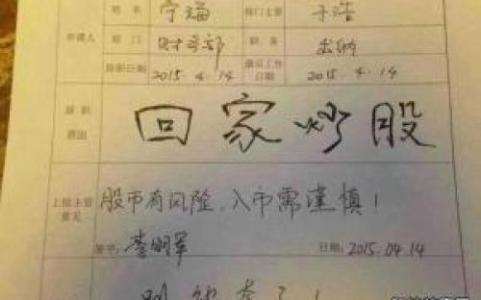 姓名 宁海 部门主管 于浩
申请人 部门 财务部 职务 出纳
辞职日期 2015.4.14 最后工作日期 2015.4.14
辞职
原因 回家炒股
上级主管
意见 股市有风险、入市需谨慎!
签字: 李明军 日期: 2015.04.14